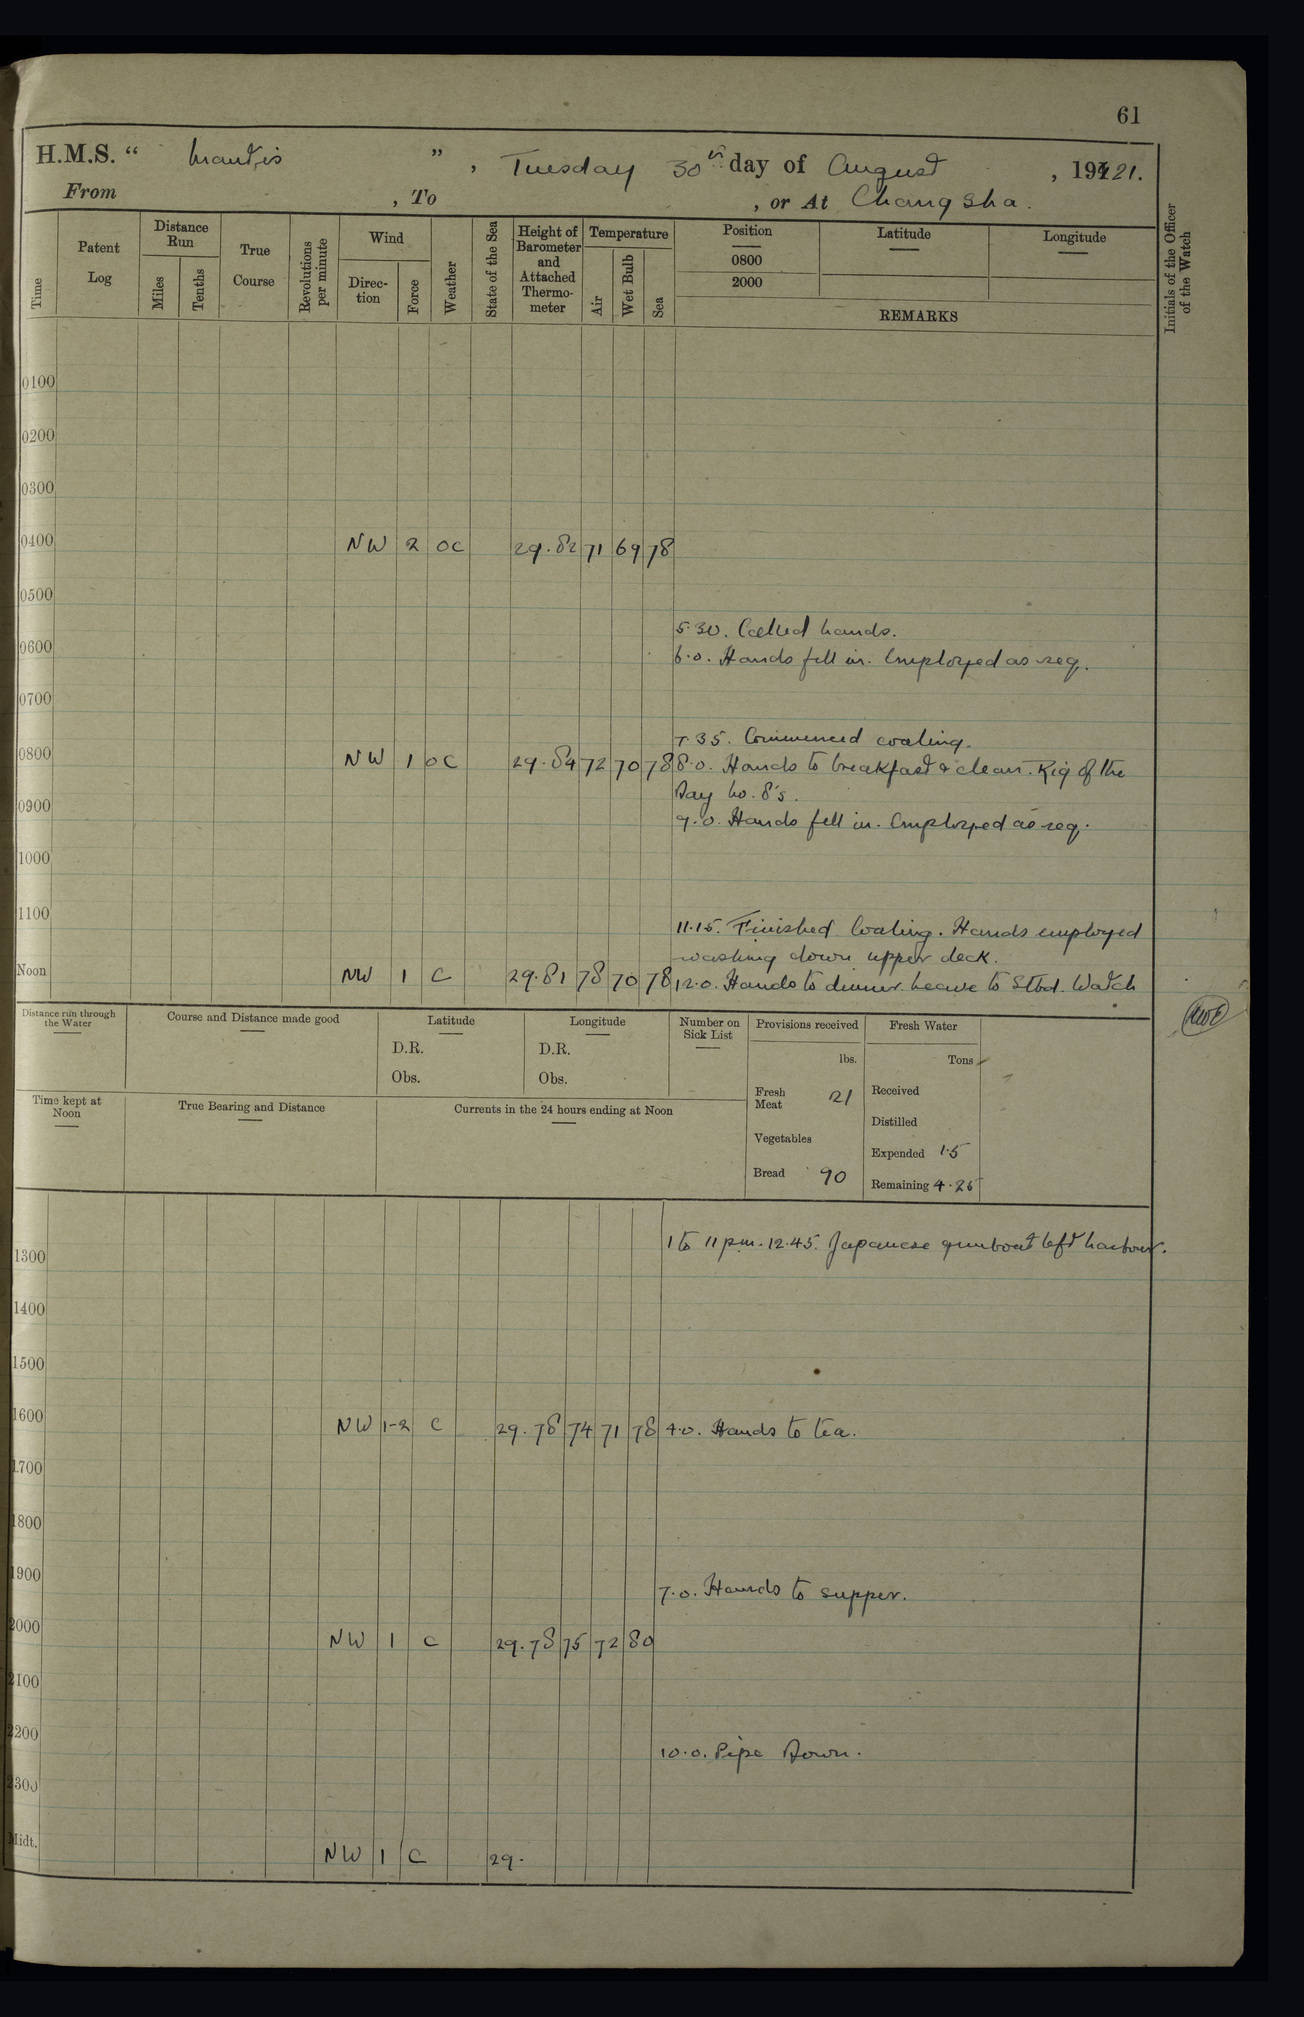 61
H.M.S. “ Mantis ” , Tuesday 30th day of August , 1921.
From , To , or At Changsha.
Time
Patent Log
Distance Run
Miles
Tenths
True Course
Revolutions per minute
Wind
Direc- tion
Force
Weather
State of the Sea
Height of Barometer and Attached Thermo- meter
Temperature
Air
Wet Bulb
Sea
Position
0800
2000
Latitude
Longitude
REMARKS
Initials of the Officer of the Watch
0100
0200
0300
0400 NW 2 oc 29.82 71 69 78
0500
5.30. Called hands.
0600
6.0. Hands fell in. Employed as req.
0700
7.35. Commenced coaling.
0800 NW 1 oc 29.84 72 70 78 8.0. Hands to breakfast & clean. Rig of the
Day No. 8's.
0900
9.0. Hands fell in. Employed as req.
1000
1100
11.15. Finished Coaling. Hands employed
washing down upper deck.
Noon NW 1 C 29.81 78 70 78 12.0. Hands to dinner. Leave to Stbd. Watch
Distance run through the Water
Course and Distance made good
Latitude
D.R.
Obs.
Longitude
D.R.
Obs.
Number on Sick List
Provisions received
lbs.
Fresh Meat 21
Vegetables
Bread 90
Fresh Water
Tons
Received
Distilled
Expended 1.5
Remaining 4.25
Time kept at Noon
True Bearing and Distance
Currents in the 24 hours ending at Noon
1 to 11 pm. 12.45. Japanese gunboat left harbour.
1300
1400
1500
1600 NW 1-2 C 29.78 74 71 78 4.0. Hands to tea.
1700
1800
1900
7.0. Hands to supper.
2000 NW 1 C 29.78 75 72 80
2100
2200
10.0. Pipe Down.
2300
Midt. NW 1 C 29.